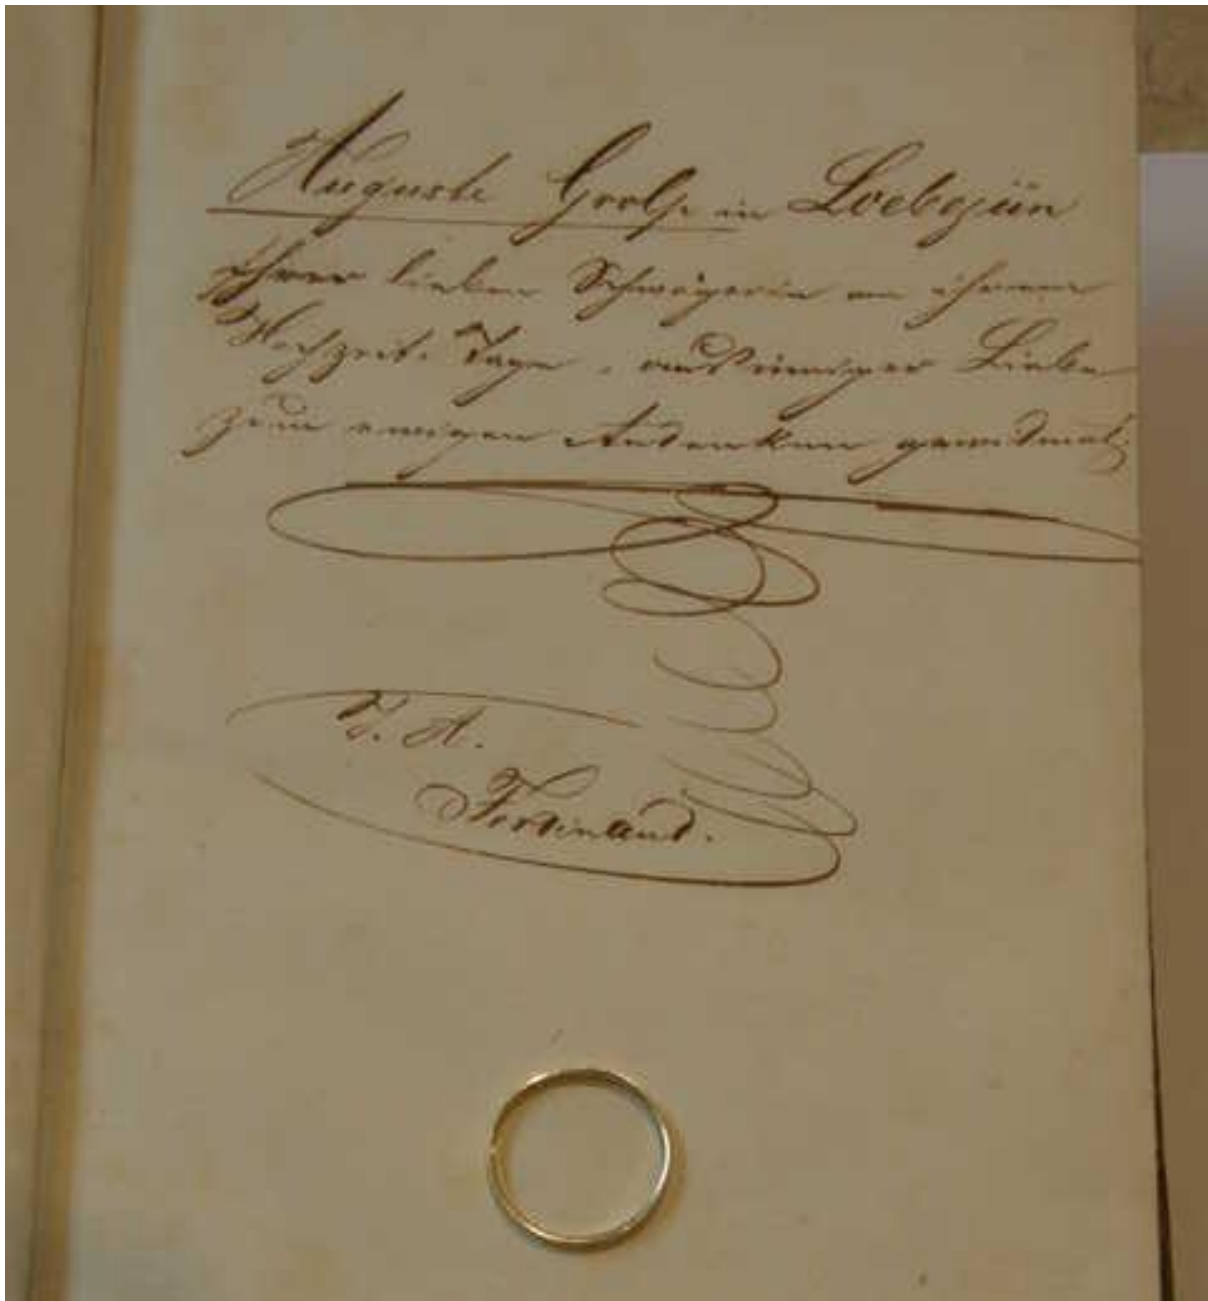 Auguste Große in Loebejün
ihrer lieben Schwägerin an ihrem
Hochzeit-Tage, aus inniger Liebe
zum ewigen Andenken gewidmet
F. A.
Ferdinand.